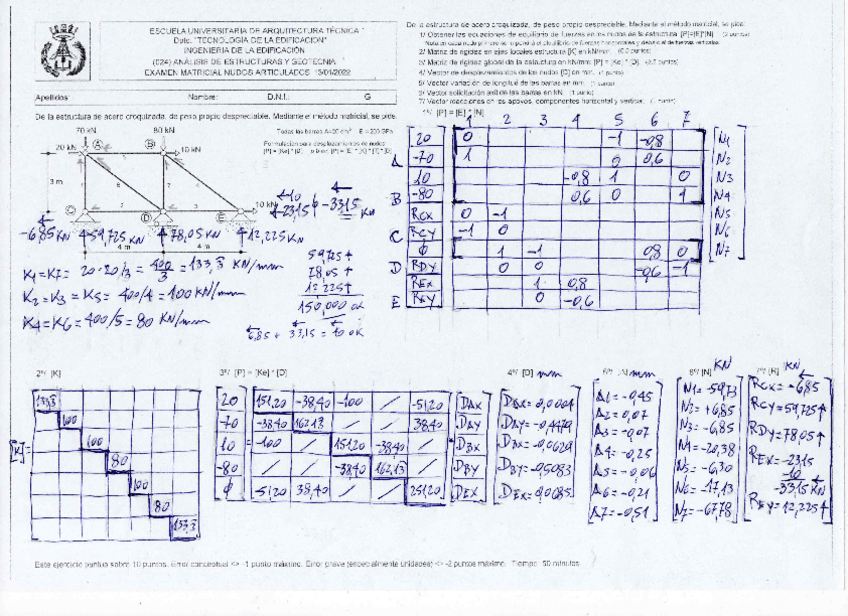 ESCUELA UNIVERSITARIA DE ARQUITECTURA TÉCNICA
Dpto. "TECNOLOGÍA DE LA EDIFICACIÓN"
INGENIERÍA DE LA EDIFICACIÓN
(024) ANÁLISIS DE ESTRUCTURAS Y GEOTECNIA
EXAMEN MATRICIAL NUDOS ARTICULADOS 13/01/2022
Apellidos: Nombre: D.N.I.: G
De la estructura de acero croquizada, de peso propio despreciable. Mediante el método matricial, se pide:
De la estructura de acero croquizada, de peso propio despreciable. Mediante el método matricial, se pide:
1/ Obtener las ecuaciones de equilibrio de fuerzas en los nudos de la estructura [P]=[E]*[N]
2/ Matriz de rigidez en ejes locales estructura [K] en kN/mm
3/ Matriz de rigidez global de la estructura en kN/mm: [P] = [Ke] * [D]
4/ Vector de desplazamientos de los nudos [D] en mm. (1 punto)
5/ Vector variación de longitud de las barras en mm. (1 punto)
6/ Vector solicitación axil de las barras en kN. (1 punto)
7/ Vector reacciones en los apoyos, componentes horizontal y vertical.
70 kN 80 kN
20 kN A B 10 kN
3 m
C D E 10 kN
4 m 4 m
-6,85 KN 59,725 KN 78,05 KN 12,225 KN
-33,15 KN
K1 = K7 = 20·20/3 = 400/3 = 133,3 KN/mm
K2 = K3 = K5 = 400/4 = 100 KN/mm
K4 = K6 = 400/5 = 80 KN/mm
59,725 ↑
78,05 ↑
12,225 ↑
150,000 ok
6,85 + 33,15 = 40 ok
1º/ [P] = [E] * [N]
1 2 3 4 5 6 7
20 0 -1 -0,8 N1
A -70 1 0 0,6 N2
10 -0,8 1 0 N3
B -80 0,6 0 1 N4
RCX 0 -1 N5
C RCY -1 0 N6
0 1 -1 0,8 0 N7
D RDY 0 0 -0,6 -1
REX 1 0,8
E REY 0 -0,6
2º/ [K]
[K]=
133,3
100
100
80
100
80
133,3
3º/ [P] = [Ke] * [D]
20 151,20 -38,40 -100 / -51,20 DAX
-70 -38,40 162,13 / / 38,40 DAY
10 -100 / 151,20 -38,40 / DBX
-80 / / -38,40 162,13 / DBY
0 -51,20 38,40 / / 251,20 DEX
4º/ [D] mm
DAX = 0,0004
DAY = -0,4479
DBX = -0,0629
DBY = -0,5083
DEX = 0,0685
mm
Δ1 = -0,45
Δ2 = 0,07
Δ3 = -0,07
Δ4 = -0,25
Δ5 = -0,06
Δ6 = -0,21
Δ7 = -0,51
6º/ [N] KN
N1 = -59,73
N2 = +6,85
N3 = -6,85
N4 = -20,38
N5 = -6,30
N6 = -17,13
N7 = -67,78
7º/ [R] KN
RCX = -6,85
RCY = 59,725 ↑
RDY = 78,05 ↑
REX = -23,15
-10
-33,15 KN
REY = 12,225 ↑
Este ejercicio puntúa sobre 10 puntos. Error conceptual <> -1 punto máximo. Error grave (especialmente unidades) <> -2 puntos máximo. Tiempo: 50 minutos